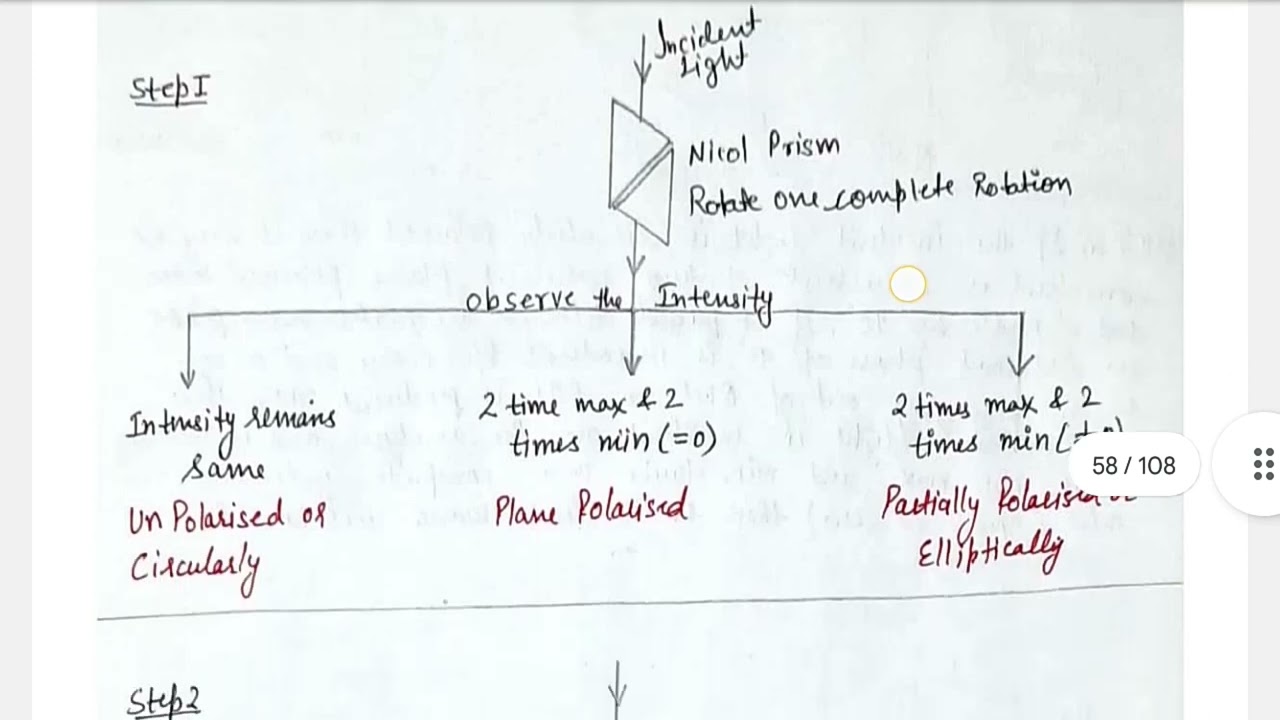 Incident
Light
Step I
Nicol Prism
Rotate one complete Rotation
observe the Intensity
Intensity remains
same
2 time max & 2
times miin (=0)
2 times max & 2
times min (
58 / 108
Un Polarised or
Circularly
Plane Polarised
Partially
Elliptically
Step2